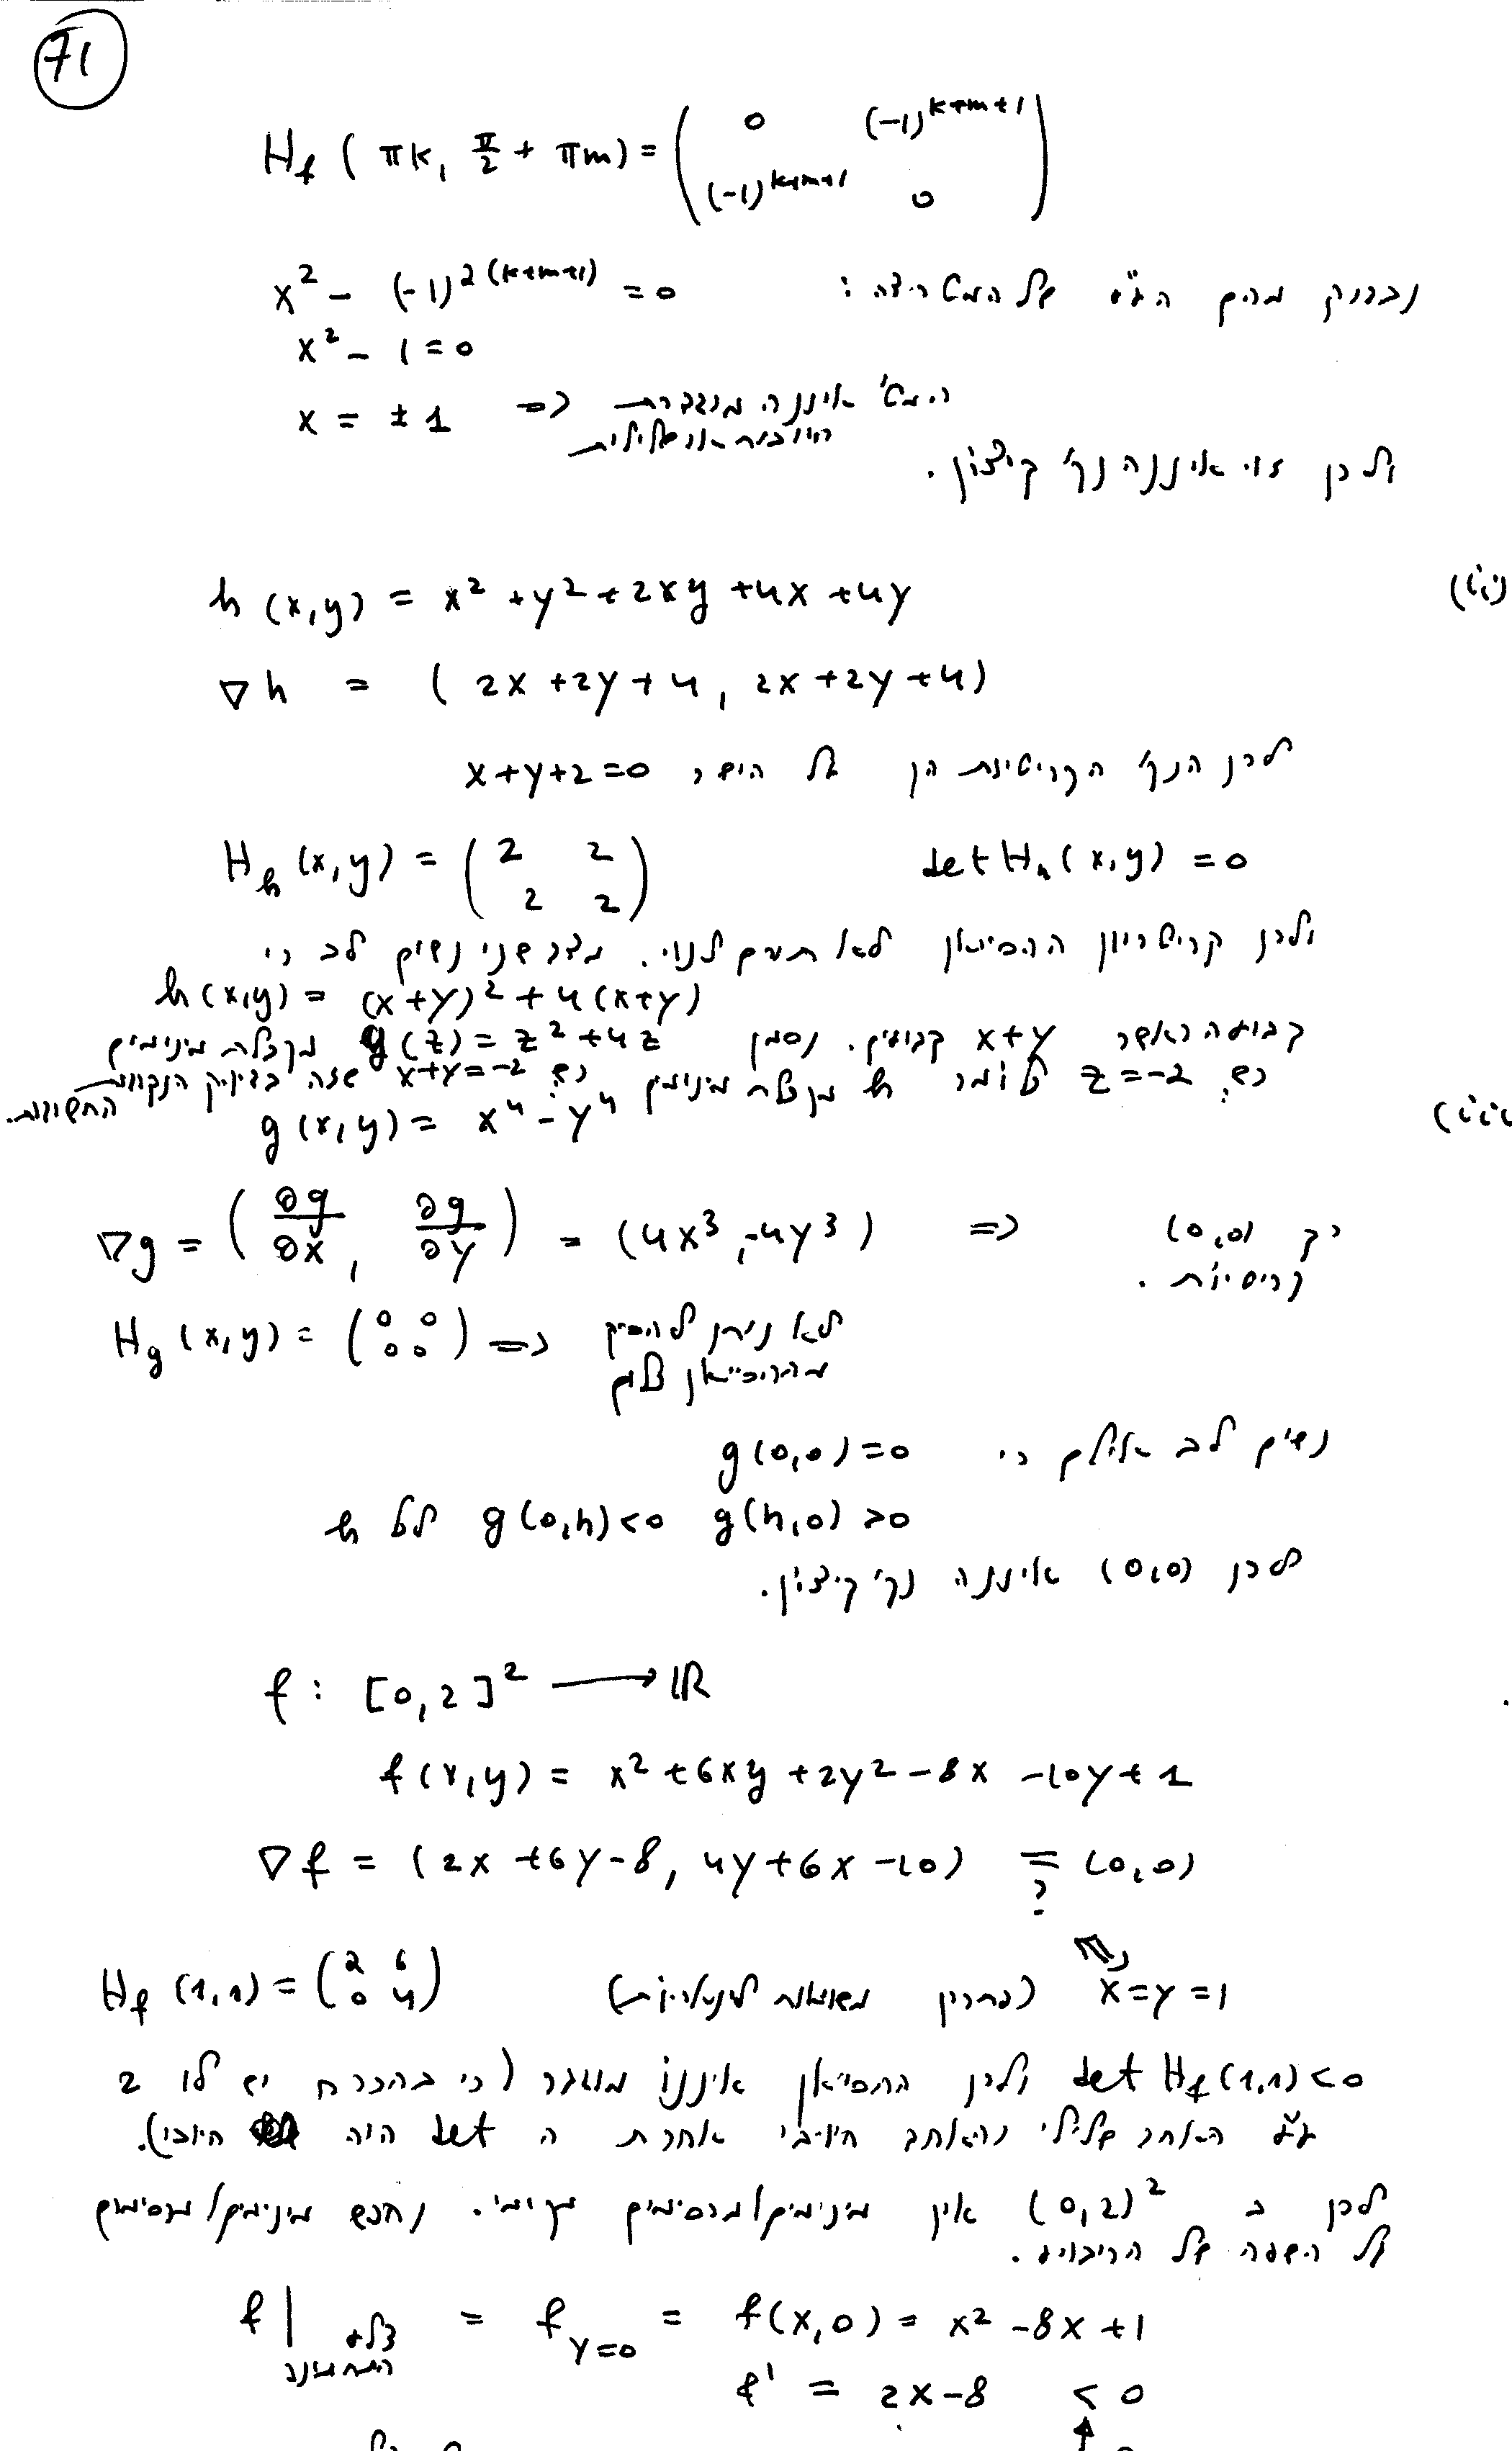 71
H_f (πk, π/2 + πm) = ( 0 (-1)^{k+m+1}
(-1)^{k+m+1} 0 )
נבדוק מהם הע"ע של המטריצה:
x² - (-1)^{2(k+m+1)} = 0
x² - 1 = 0
x = ±1 => המט' איננה מוגדרת
חיובית או שלילית
ולכן זוי איננה נק' קיצון.
ii)
h(x,y) = x² + y² + 2xy + 4x + 4y
∇h = (2x+2y+4, 2x+2y+4)
לכן הנק' הקריטיות הן על הישר x+y+2=0
H_h(x,y) = ( 2 2
2 2 ) det H_h(x,y) = 0
ולכן קריטריון ההסיאן לא תורם לנו. מצד שני נשים לב כי
h(x,y) = (x+y)² + 4(x+y)
קבועה כאשר x+y קבועים. נסמן g(z) = z² + 4z מקבלת מינימים
כש z=-2 כלומר h מקבלת מינימים כש x+y=-2 שזה בדיוק הנקודות
החשודות.
iii)
g(x,y) = x⁴ - y⁴
∇g = (∂g/∂x, ∂g/∂y) = (4x³, -4y³) => רק (0,0)
קריטיות.
H_g(x,y) = ( 0 0
0 0 ) => לא ניתן להסיק
מההסיאן כלום
נשים לב אולם כי g(0,0)=0
g(h,0)>0 g(0,h)<0 לכל h
לכן (0,0) איננה נק' קיצון.
f: [0,2]² ⟶ ℝ
f(x,y) = x² + 6xy + 2y² - 8x - 10y + 1
∇f = (2x+6y-8, 4y+6x-10) =? (0,0)
x=y=1 (פתרון משוואות לינאריות)
H_f(1,1) = ( 2 6
0 4 )
det H_f(1,1)<0 ולכן ההסיאן איננו מוגדר (כי בהכרח יש לו 2
ע"ע האחד שלילי והאחד חיובי אחרת ה det היה חיובי).
לכן ב (0,2)² אין מינימום/מכסימום מקומי. נחפש מינימום/מכסימום
על השפה של הריבוע.
f| צלע התחתונה = f_{y=0} = f(x,0) = x² - 8x + 1
f' = 2x-8 < 0
↑